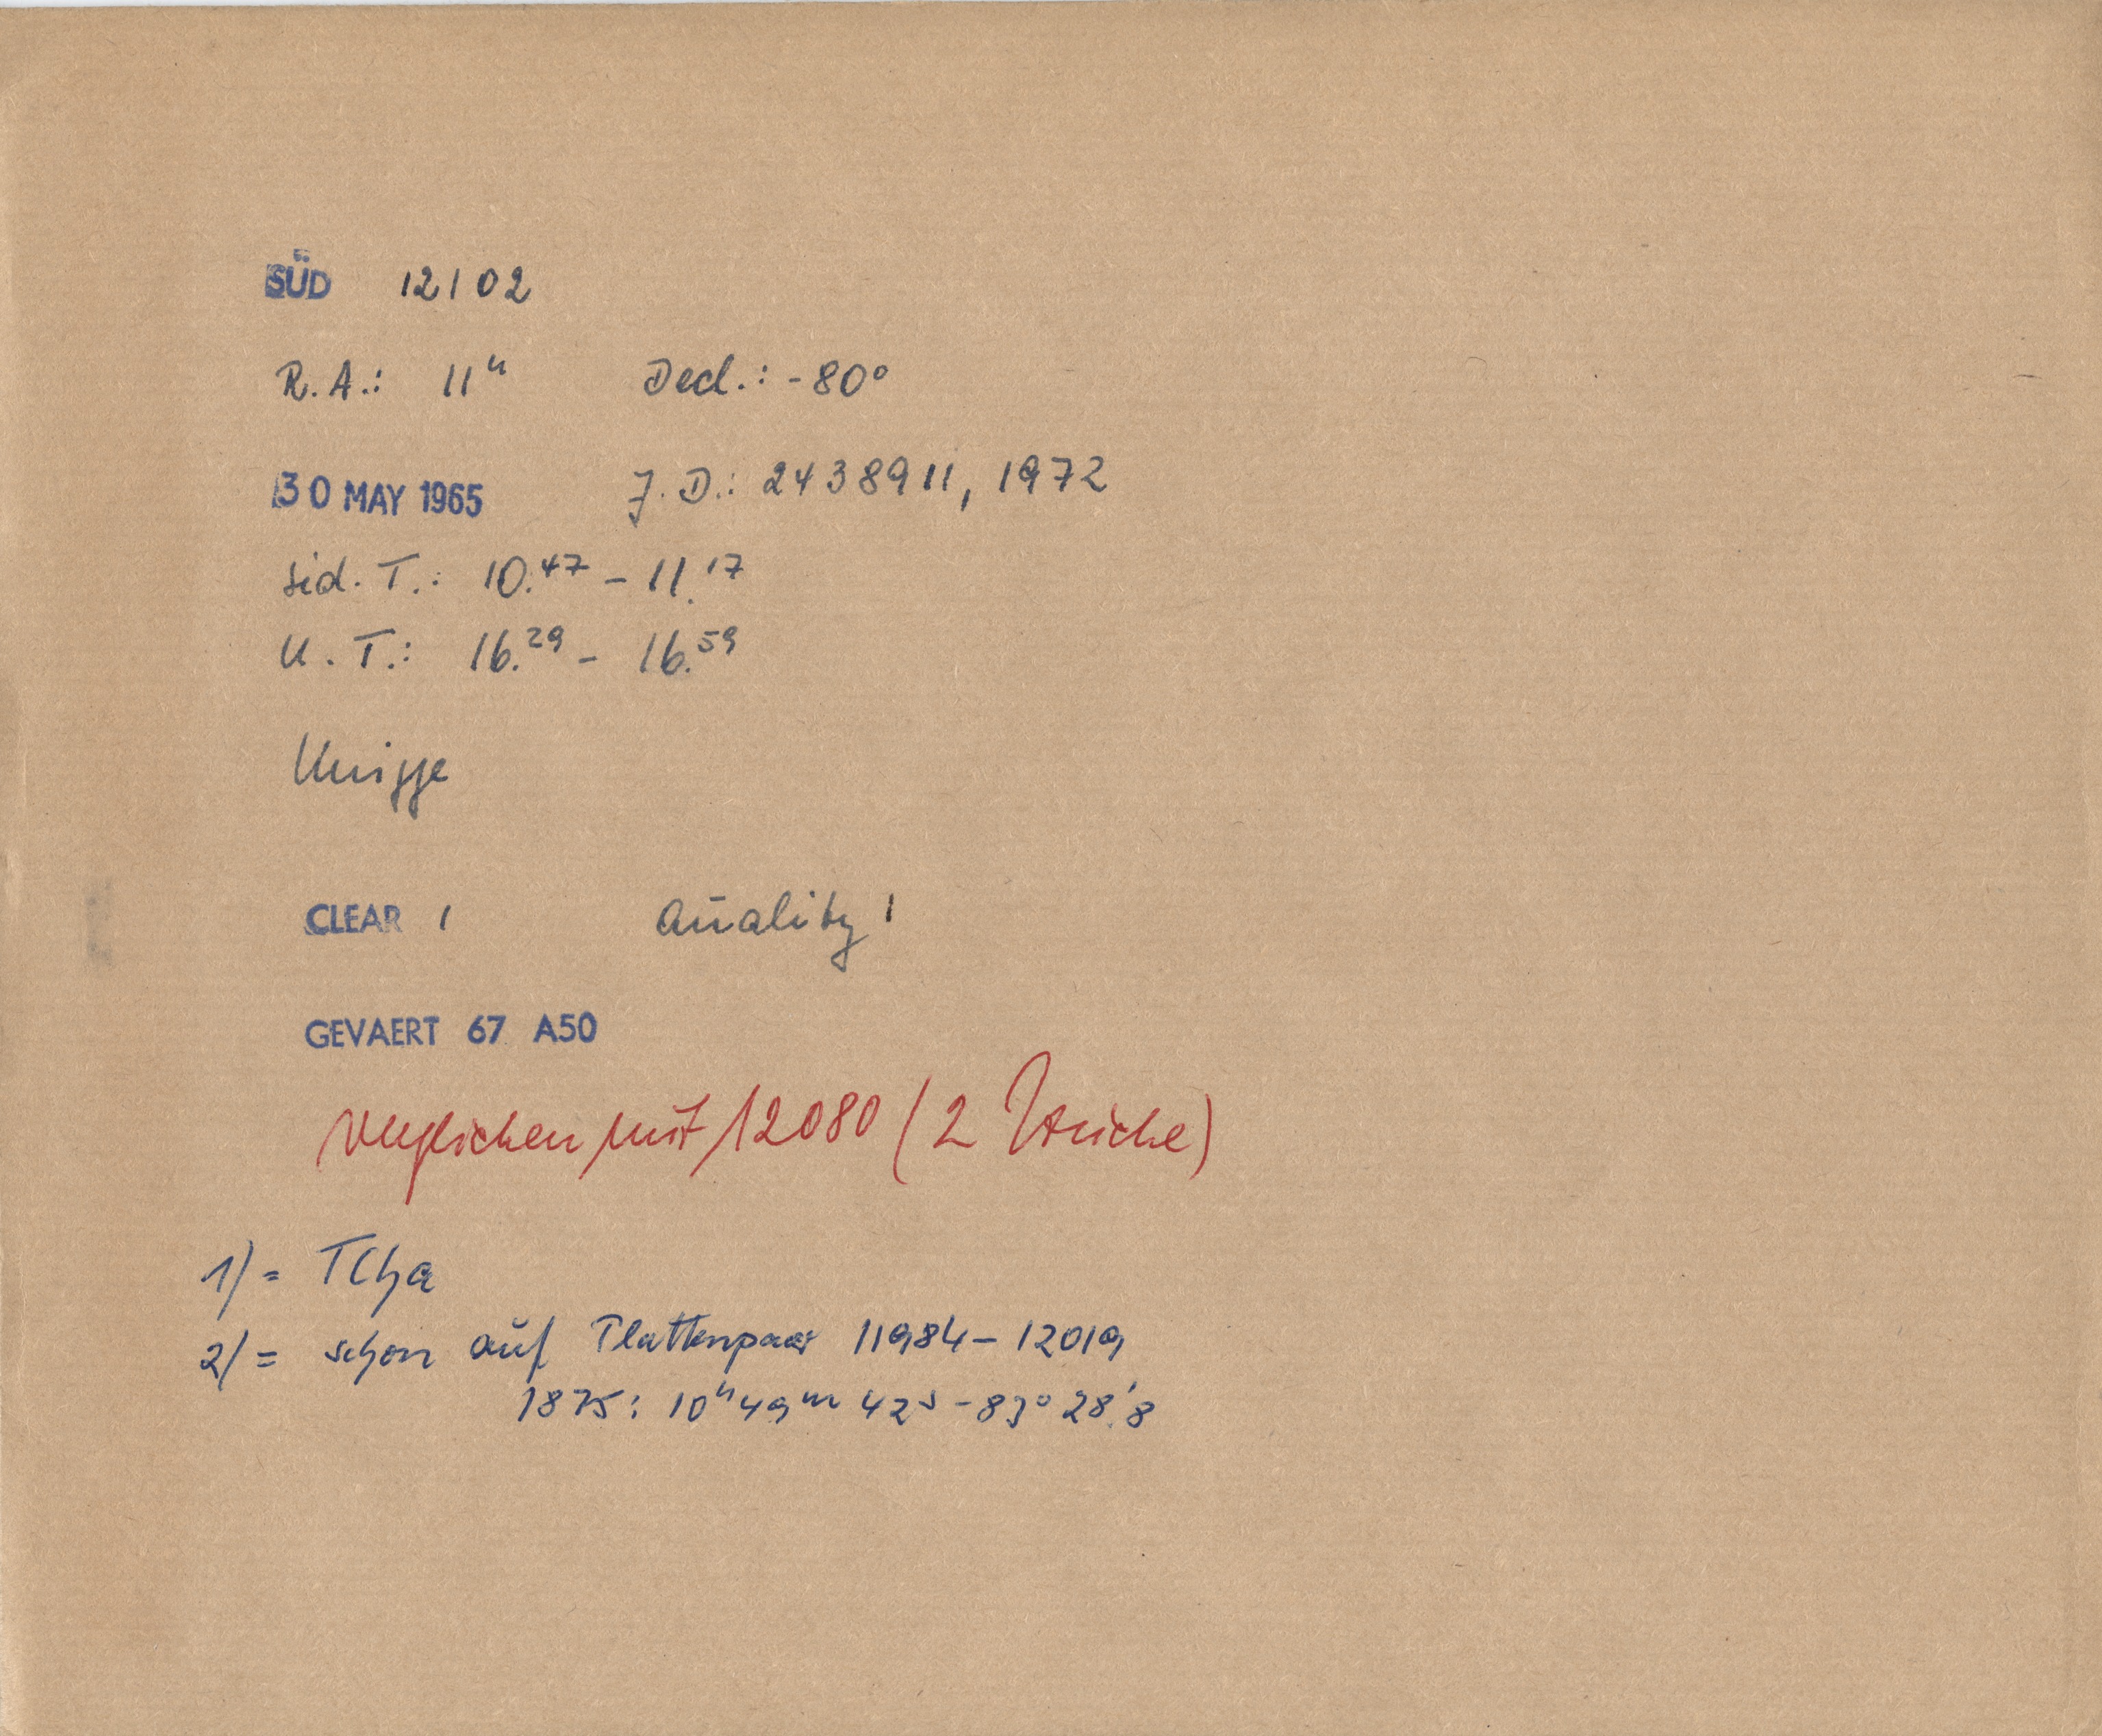 SÜD 12102
R.A.: 11ʰ Decl.: -80°
30 MAY 1965 J.D.: 2438911,1972
Sid. T.: 10.⁴⁷ - 11.¹⁷
U.T.: 16.²⁹ - 16.⁵⁹
Knigge
CLEAR 1 Quality 1
GEVAERT 67 A50
verglichen mit 12080 (2 Striche)
1) = T Cha
2) = schon auf Plattenpaar 11984 - 12019
1875: 10ʰ 49ᵐ 42ˢ -83° 28',8